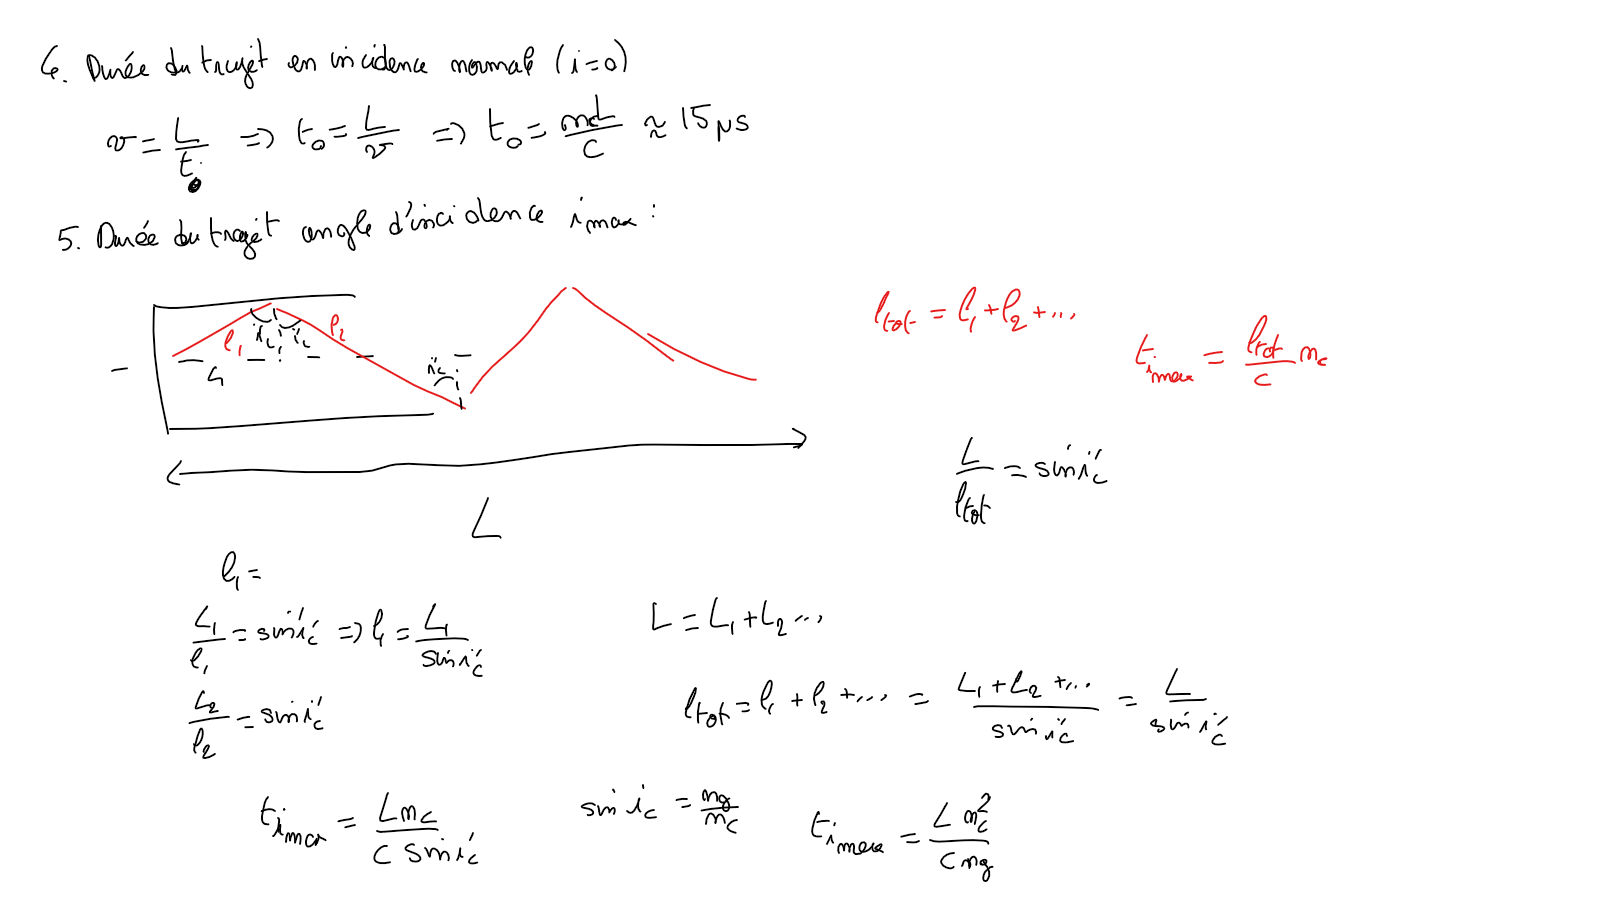 4. Durée du trajet en incidence normale (i=0)
v = L/t₀ => t₀ = L/v => t₀ = n_c L/c ≈ 15 µs
5. Durée du trajet angle d'incidence i_max :
l₁ i'_c i'_c l₂
L₁
i'_c
L
l_tot = l₁ + l₂ + ...
t_imax = l_tot/c n_c
L/l_tot = sin i'_c
l₁ =
L₁/l₁ = sin i'_c => l₁ = L₁/sin i'_c
L₂/l₂ = sin i'_c
L = L₁ + L₂ ...
l_tot = l₁ + l₂ + ... = L₁ + L₂ + .../sin i'_c = L/sin i'_c
t_imax = L n_c/c sin i'_c
sin i_c = n_g/n_c
t_imax = L n_c²/c n_g